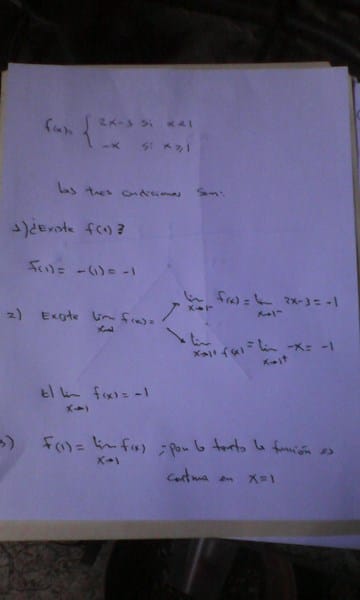 f(x)= { 2x-3 si x<1
-x si x≥1
Las tres condiciones son:
1) ¿Existe f(1)?
f(1) = -(1) = -1
2) Existe lim x→1 f(x) =
lim x→1⁻ f(x) = lim x→1⁻ 2x-3 = -1
lim x→1⁺ f(x) = lim x→1⁺ -x = -1
lim x→1 f(x) = -1
3) f(1) = lim x→1 f(x) ; por lo tanto la función es
continua en x=1